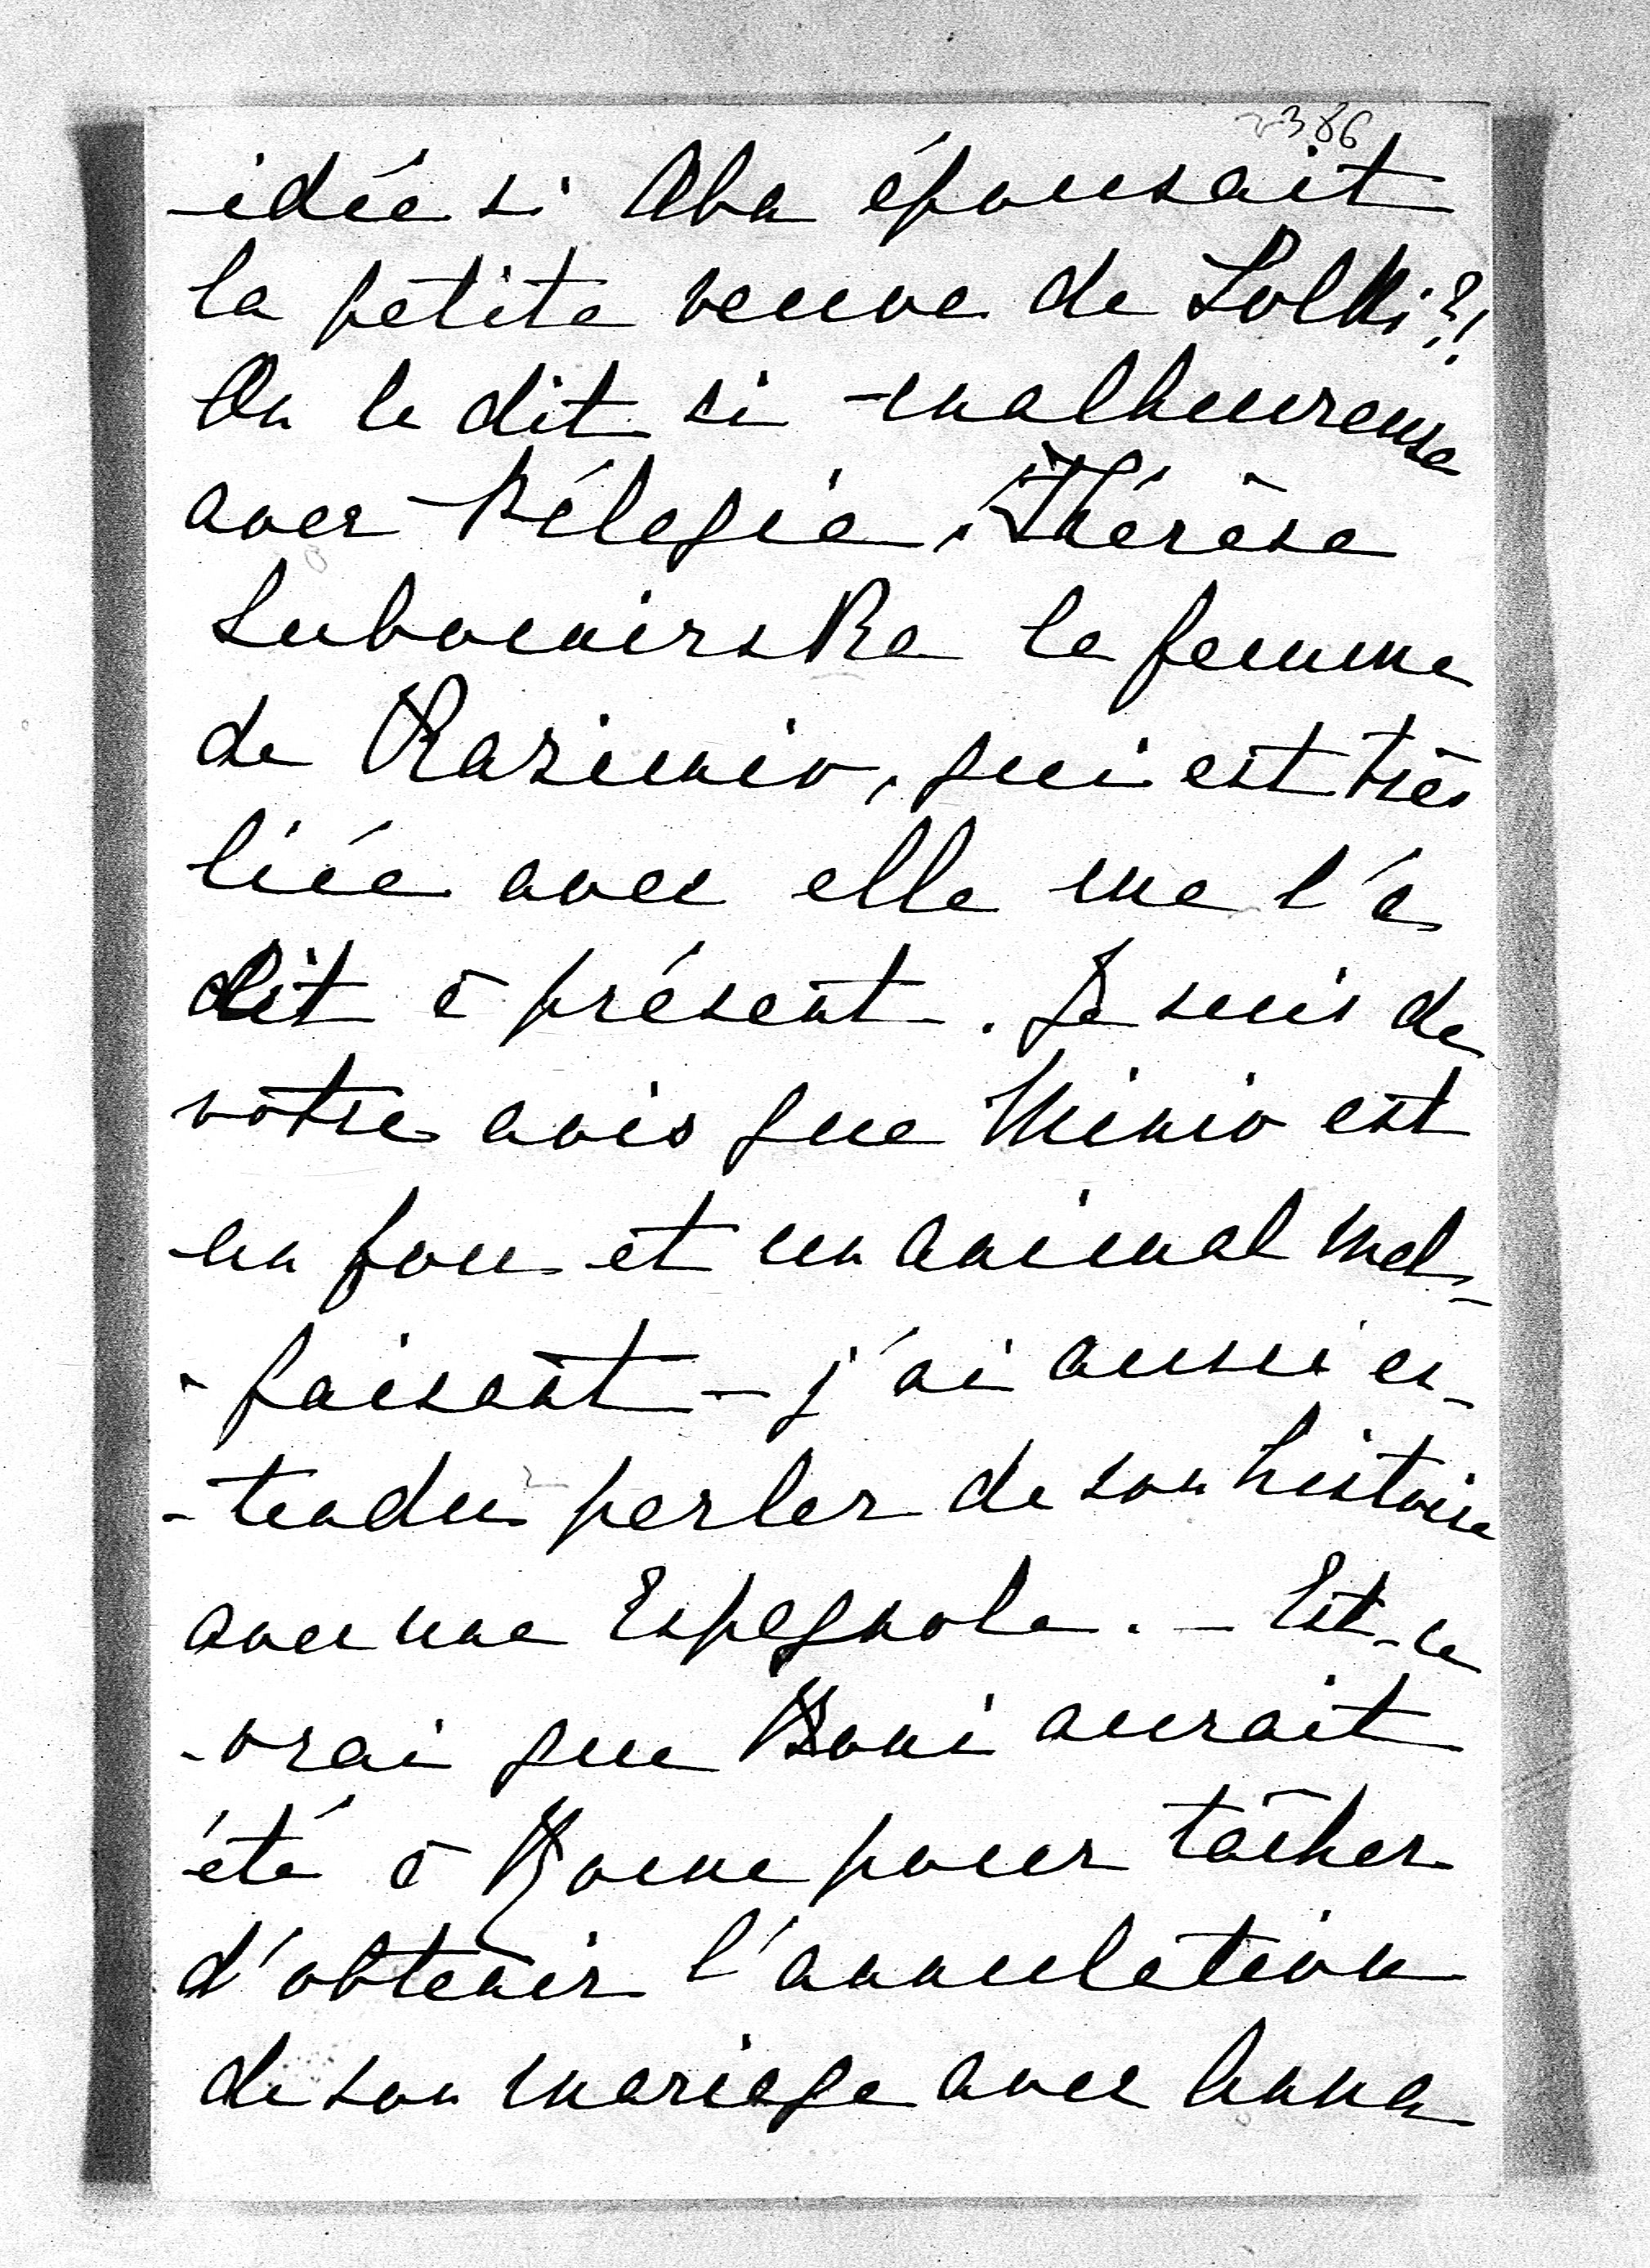 2386
idée si Aba épousait
la petite veuve de Lolki?!
On le dit si malheureuse
avec Pélagie, Thérèse
Lubomirska la femme
de Kazimio, qui est très
liée avec elle me l'a
dit à présent. Je suis de
votre avis que Minio est
un fou et un animal mal-
-faisant - j'ai aussi en-
-tendu parler de son histoire
avec une Espagnole. - Est-ce
vrai que Boni aurait
été à Rome pour tâcher
d'obtenir l'annulation
de son mariage avec Anna